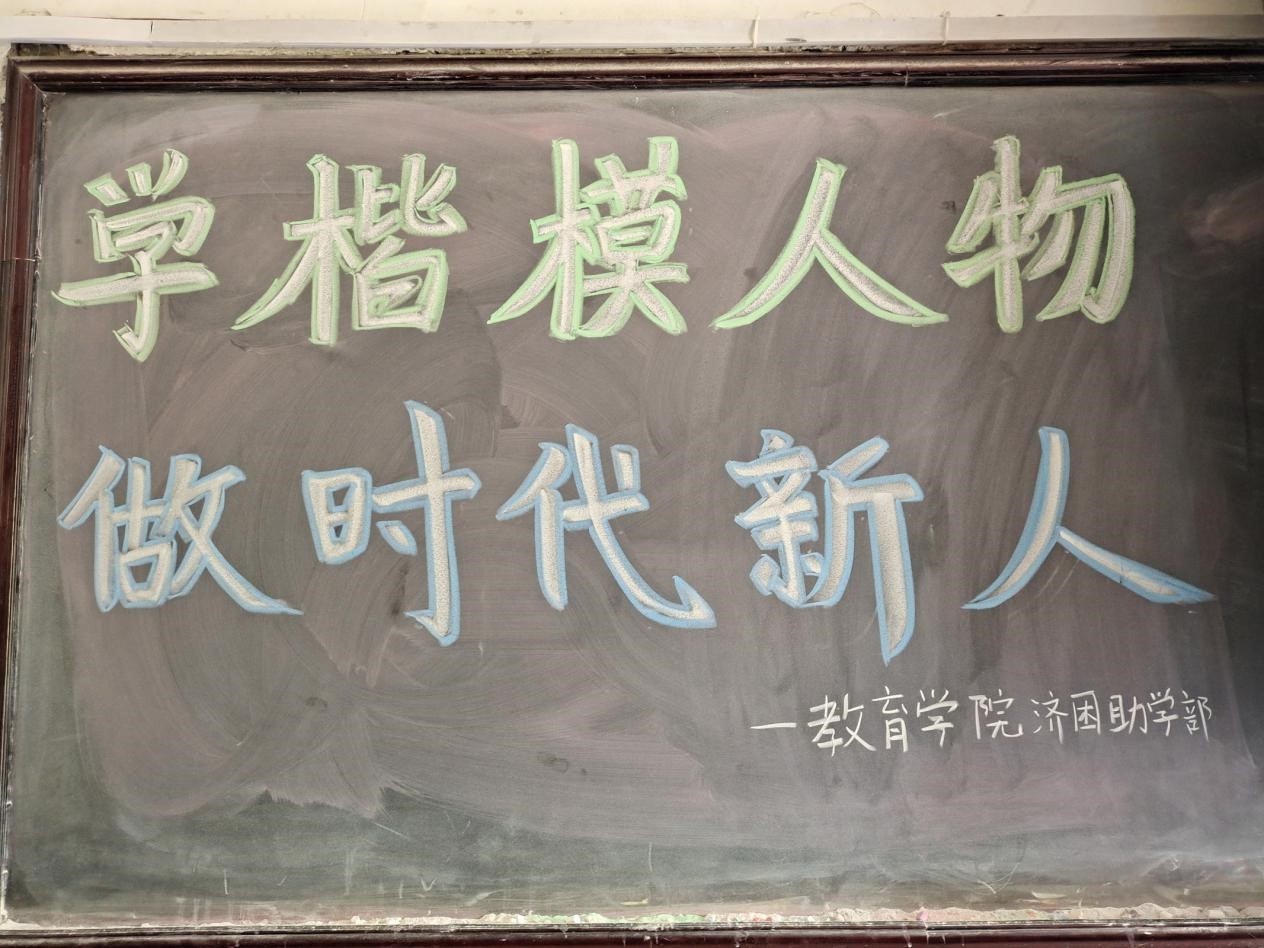 学楷模人物
做时代新人
一教育学院济困助学部